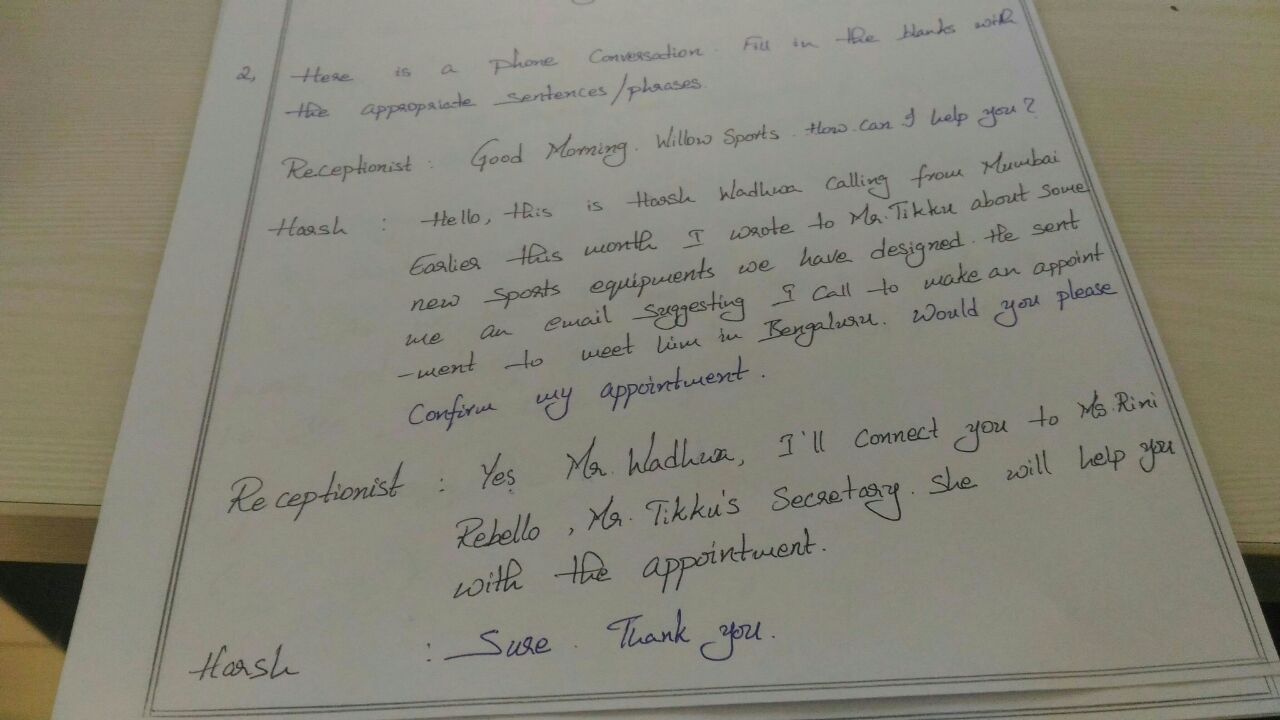 2, Here is a phone Conversation. Fill in the blanks with
the appropriate sentences/phrases.
Receptionist : Good Morning. Willow Sports. How can I help you?
Harsh : Hello, this is Harsh Wadhwa Calling from Mumbai
Earlier this month I wrote to Mr. Tikku about some
new sports equipments we have designed. He sent
me an email suggesting I call to make an appoint
-ment to meet him in Bengaluru. Would you please
Confirm my appointment.
Receptionist : Yes Mr. Wadhwa, I'll connect you to Ms. Rini
Rebello, Mr. Tikku's Secretary. She will help you
with the appointment.
Harsh : Sure. Thank you.